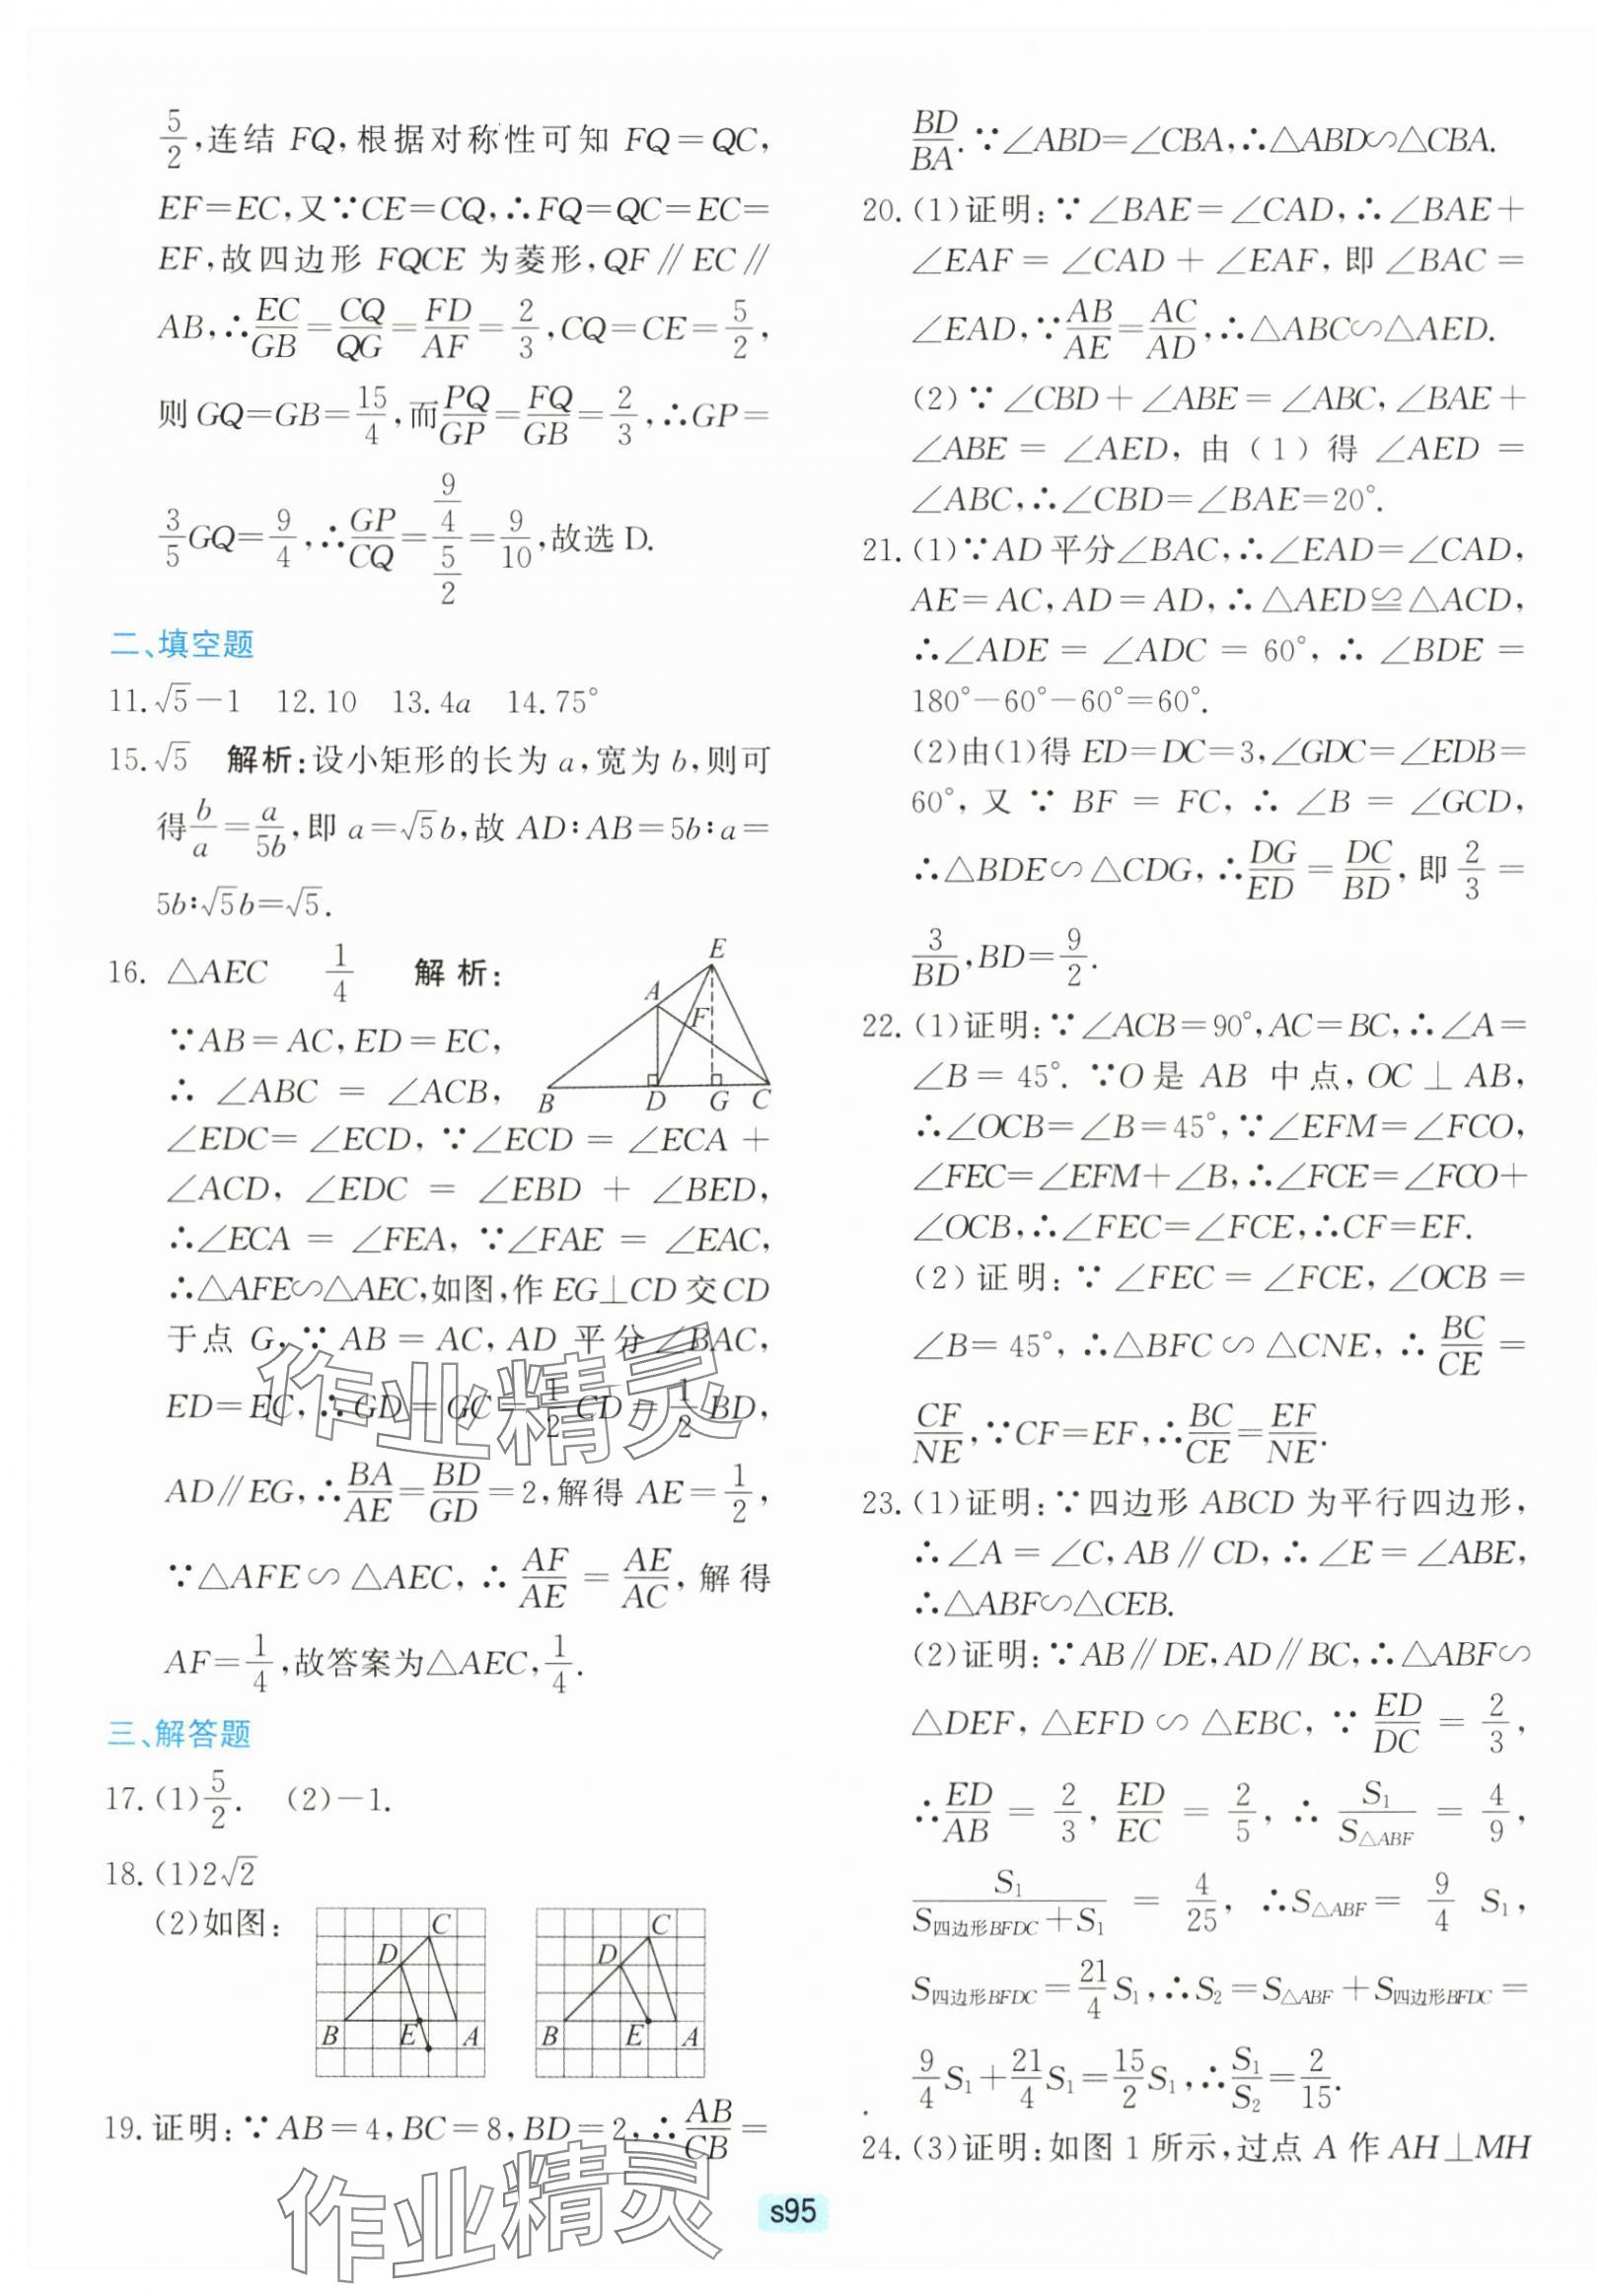 5/2,连结 FQ,根据对称性可知 FQ=QC,
EF=EC,又∵CE=CQ,∴FQ=QC=EC=
EF,故四边形 FQCE 为菱形,QF∥EC∥
AB,∴EC/GB=CQ/QG=FD/AF=2/3,CQ=CE=5/2,
则 GQ=GB=15/4,而PQ/GP=FQ/GB=2/3,∴GP=
3/5GQ=9/4,∴GP/CQ=(9/4)/(5/2)=9/10,故选 D.
二、填空题
11.√5-1 12.10 13.4a 14.75°
15.√5 解析:设小矩形的长为 a,宽为 b,则可
得b/a=a/5b,即 a=√5b,故 AD∶AB=5b∶a=
5b∶√5b=√5.
16. △AEC 1/4 解析:
∵AB=AC,ED=EC,
∴ ∠ABC = ∠ACB,
∠EDC=∠ECD,∵∠ECD=∠ECA+
∠ACD,∠EDC = ∠EBD + ∠BED,
∴∠ECA = ∠FEA,∵∠FAE = ∠EAC,
∴△AFE∽△AEC,如图,作 EG⊥CD 交 CD
于点 G,∵AB=AC,AD 平分∠BAC,
ED=EC,∴GD=GC=1/2CD=1/2BD,
AD∥EG,∴BA/AE=BD/GD=2,解得 AE=1/2,
∵△AFE∽△AEC,∴AF/AE=AE/AC,解得
AF=1/4,故答案为△AEC,1/4.
E
A
F
B D G C
三、解答题
17.(1)5/2. (2)-1.
18.(1)2√2
(2)如图:
C
D
B E A
C
D
B E A
19.证明:∵AB=4,BC=8,BD=2,∴AB/CB=
BD/BA.∵∠ABD=∠CBA,∴△ABD∽△CBA.
20.(1)证明:∵∠BAE=∠CAD,∴∠BAE+
∠EAF=∠CAD+∠EAF,即∠BAC=
∠EAD,∵AB/AE=AC/AD,∴△ABC∽△AED.
(2)∵∠CBD+∠ABE=∠ABC,∠BAE+
∠ABE = ∠AED,由(1)得 ∠AED =
∠ABC,∴∠CBD=∠BAE=20°.
21.(1)∵AD 平分∠BAC,∴∠EAD=∠CAD,
AE=AC,AD=AD,∴△AED≌△ACD,
∴∠ADE = ∠ADC = 60°,∴ ∠BDE =
180°-60°-60°=60°.
(2)由(1)得 ED=DC=3,∠GDC=∠EDB=
60°,又 ∵ BF = FC,∴ ∠B = ∠GCD,
∴△BDE∽△CDG,∴DG/ED=DC/BD,即2/3=
3/BD,BD=9/2.
22.(1)证明:∵∠ACB=90°,AC=BC,∴∠A=
∠B=45°.∵O 是 AB 中点,OC⊥AB,
∴∠OCB=∠B=45°,∵∠EFM=∠FCO,
∠FEC=∠EFM+∠B,∴∠FCE=∠FCO+
∠OCB,∴∠FEC=∠FCE,∴CF=EF.
(2)证明:∵∠FEC=∠FCE,∠OCB=
∠B=45°,∴△BFC∽△CNE,∴BC/CE=
CF/NE,∵CF=EF,∴BC/CE=EF/NE.
23.(1)证明:∵四边形 ABCD 为平行四边形,
∴∠A=∠C,AB∥CD,∴∠E=∠ABE,
∴△ABF∽△CEB.
(2)证明:∵AB∥DE,AD∥BC,∴△ABF∽
△DEF,△EFD∽△EBC,∵ED/DC=2/3,
∴ED/AB=2/3,ED/EC=2/5,∴S₁/S△ABF=4/9,
S₁/(S四边形BFDC+S₁)=4/25,∴S△ABF=9/4 S₁,
S四边形BFDC=21/4S₁,∴S₂=S△ABF+S四边形BFDC=
9/4S₁+21/4S₁=15/2S₁,∴S₁/S₂=2/15.
24.(3)证明:如图 1 所示,过点 A 作 AH⊥MH
作业精灵
作业精灵
s95